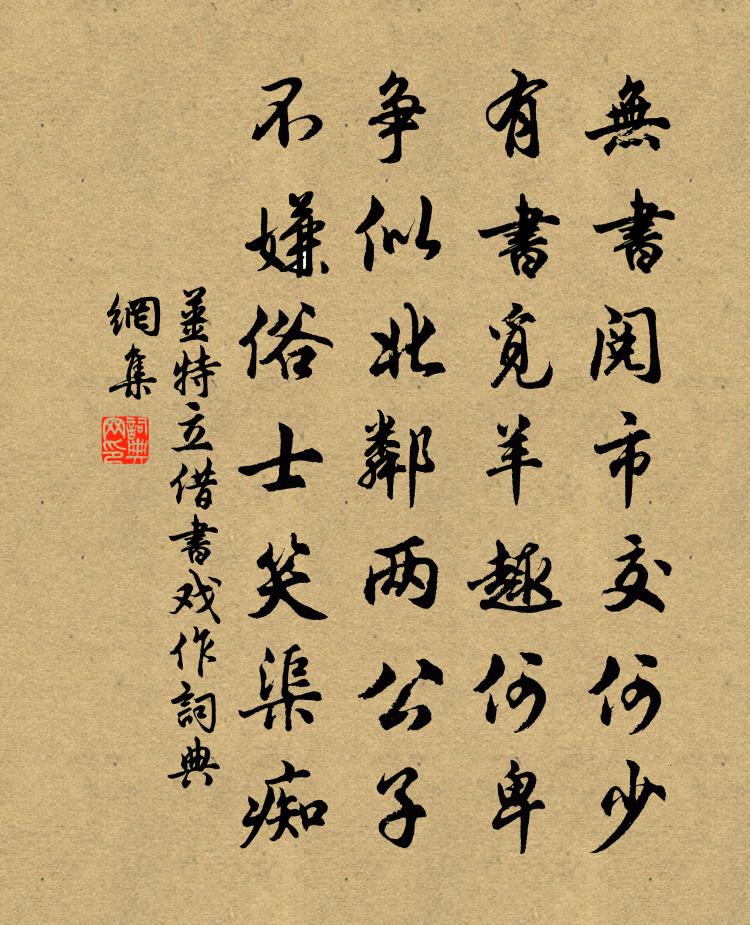 無書閱市交何少
有書覓羊趣何卑
争似北鄰两公子
不嫌俗士笑渠痴
姜特立借書戏作詞典
網集
詞典網印